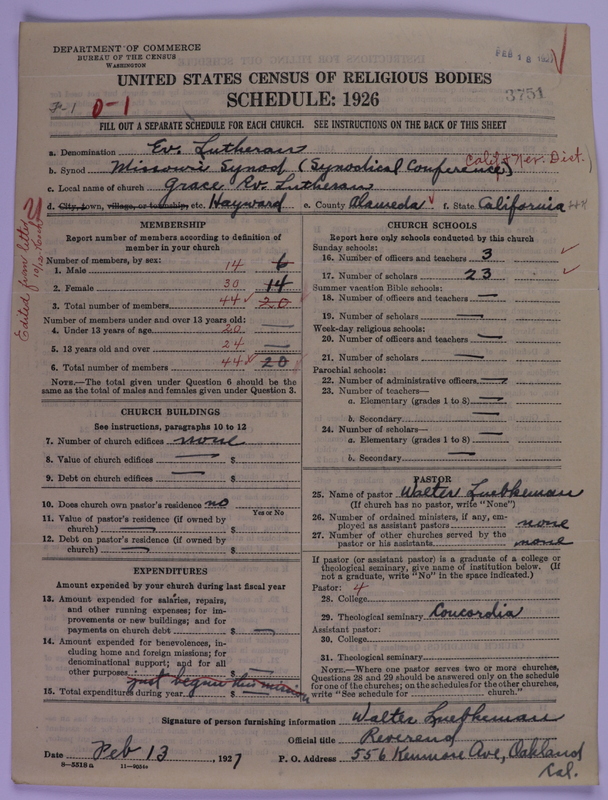 DEPARTMENT OF COMMERCE
BUREAU OF THE CENSUS
WASHINGTON
FEB 18 1927
UNITED STATES CENSUS OF RELIGIOUS BODIES
SCHEDULE: 1926
3751
0-1
FILL OUT A SEPARATE SCHEDULE FOR EACH CHURCH. SEE INSTRUCTIONS ON THE BACK OF THIS SHEET
a. Denomination Ev. Lutheran
b. Synod Missouri Synod (Synodical Conference) Calif & Nev. Dist.)
c. Local name of church Grace Ev. Lutheran
d. City, town, village, or township, etc. Hayward e. County Alameda f. State California
Edited from letter
MEMBERSHIP
Report number of members according to definition of
member in your church
Number of members, by sex:
1. Male 14 6
2. Female 30 14
3. Total number of members 44 20
Number of members under and over 13 years old:
4. Under 13 years of age 20 —
5. 13 years old and over 24 —
6. Total number of members 44 20
NOTE.—The total given under Question 6 should be the
same as the total of males and females given under Question 3.
CHURCH BUILDINGS
See instructions, paragraphs 10 to 12
7. Number of church edifices none
8. Value of church edifices — $
9. Debt on church edifices — $
10. Does church own pastor's residence no
Yes or No
11. Value of pastor's residence (if owned by
church) — $
12. Debt on pastor's residence (if owned by
church) — $
EXPENDITURES
Amount expended by your church during last fiscal year
13. Amount expended for salaries, repairs,
and other running expenses; for im-
provements or new buildings; and for
payments on church debt $ —
14. Amount expended for benevolences, in-
cluding home and foreign missions; for
denominational support; and for all
other purposes $ —
just began this mission
15. Total expenditures during year $ —
CHURCH SCHOOLS
Report here only schools conducted by this church
Sunday schools:
16. Number of officers and teachers 3
17. Number of scholars 23
Summer vacation Bible schools:
18. Number of officers and teachers —
19. Number of scholars —
Week-day religious schools:
20. Number of officers and teachers —
21. Number of scholars —
Parochial schools:
22. Number of administrative officers —
23. Number of teachers—
a. Elementary (grades 1 to 8) —
b. Secondary —
24. Number of scholars—
a. Elementary (grades 1 to 8) —
b. Secondary —
PASTOR
25. Name of pastor Walter Luebkeman
(If church has no pastor, write "None")
26. Number of ordained ministers, if any, em-
ployed as assistant pastors none
27. Number of other churches served by the
pastor or his assistants none
If pastor (or assistant pastor) is a graduate of a college or
theological seminary, give name of institution below. (If
not a graduate, write "No" in the space indicated.)
Pastor: 4
28. College
29. Theological seminary Concordia
Assistant pastor:
30. College
31. Theological seminary
NOTE.—Where one pastor serves two or more churches,
Questions 28 and 29 should be answered only on the schedule
for one of the churches; on the schedules for the other churches,
write "See schedule for church."
Signature of person furnishing information Walter Luebkeman
Official title Reverend
Date Feb 13, 1927 P. O. Address 556 Kenmore Ave, Oakland
Cal.
8—5518 a